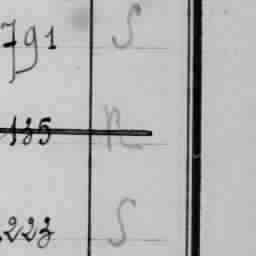 791 S
135 n
223 S